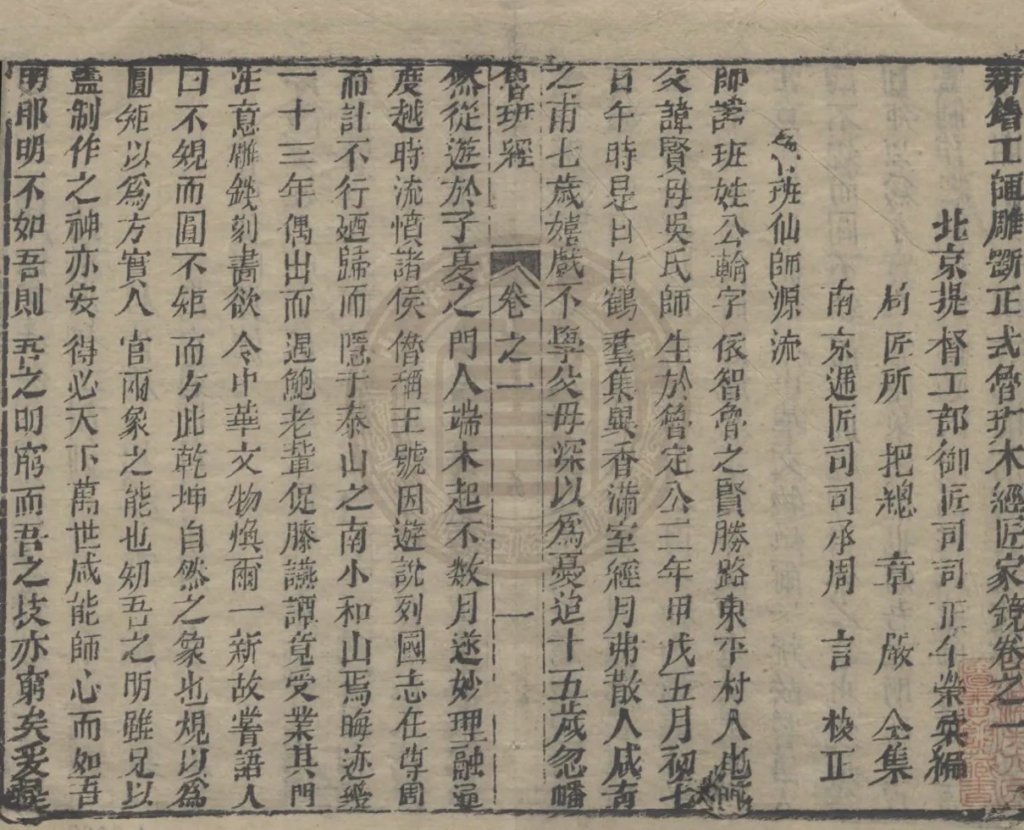 新鐫工師雕斵正式魯班木經匠家鏡卷之一
北京提督工部御匠司司正午榮彙編
局匠所 把總 章嚴 仝集
南京逓匠司司承周 言 校正
班仙師源流
師諱班姓公輸字依智魯之賢勝路東平村人也師
父諱賢母吳氏師生於魯定公三年甲戊五月初七
日午時是日白鶴羣集異香滿室經月弗散人咸奇
之甫七歲嬉戲不學父母深以爲憂迨十五歲忽幡
魯班經 卷之一 一
然從遊於子夏之門人端木起不数月遂妙理融通
度越時流憤諸侯僭稱王號因遊說列國志在尊周
而計不行廼歸而隱于泰山之南小和山焉晦迹幾
一十三年偶出而遇鮑老軰促膝讌譚竟受業其門
注意雕鏤刻畫欲令中華文物煥爾一新故嘗語人
曰不規而圓不矩而方此乾坤自然之象也規以爲
圓矩以爲方實人官兩象之能也矧吾之明雖兄以
盡制作之神亦安得必天下萬世咸能師心而如吾
明耶明不如吾則吾之明窮而吾之技亦窮矣爰是